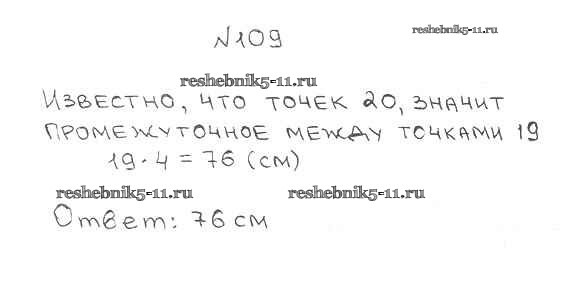 №109
reshebnik5-11.ru
reshebnik5-11.ru
ИЗВЕСТНО, ЧТО ТОЧЕК 20, ЗНАЧИТ
ПРОМЕЖУТОЧНОЕ МЕЖДУ ТОЧКАМИ 19
19 · 4 = 76 (СМ)
reshebnik5-11.ru reshebnik5-11.ru
Ответ: 76 см